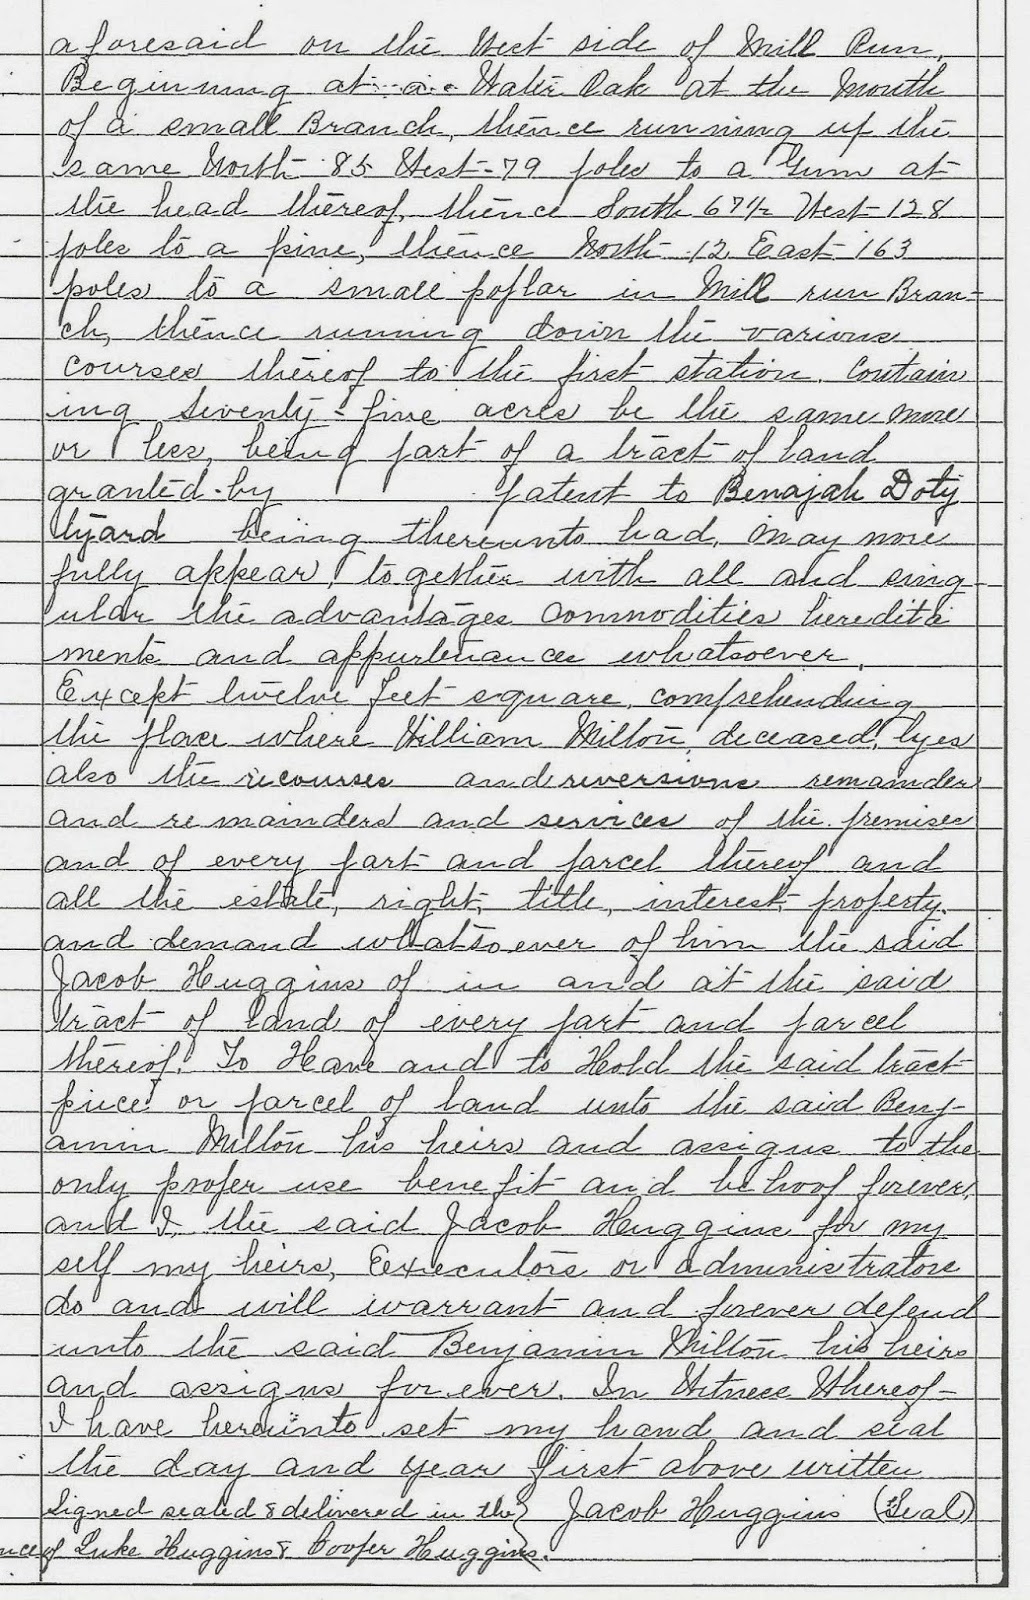 aforesaid on the West side of Mill Run,
Beginning at a Water Oak at the Mouth
of a small Branch, thence running up the
same North 85 West 79 poles to a Gum at
the head thereof, thence South 67½ West 128
poles to a pine, thence North 12 East 163
poles to a small poplar in Mill run Bran-
ch, thence running down the various
courses thereof to the first station. Contain
ing Seventy-five acres be the same more
or less, being part of a tract of land
granted by patent to Benajah Doty
being thereunto had, may more
fully appear, together with all and sing-
ular the advantages commodities heredita
ments and appurtenances whatsoever,
Except twelve feet square, comprehending
the place where William Milton, deceased, lyes
also the recourses and reversions remainder
and remainders and services of the premises
and of every part and parcel thereof and
all the estate, right, title, interest, property,
and demand whatsoever of him the said
Jacob Huggins of in and at the said
tract of land of every part and parcel
thereof. To Have and to Hold the said tract
piece or parcel of land unto the said Benj-
amin Milton his heirs and assigns to the
only proper use benefit and behoof forever,
and I, the said Jacob Huggins for my
self my heirs, Executors or administrators
do and will warrant and forever defend
unto the said Benjamin Milton his heirs
and assigns for ever. In Witness Whereof-
I have hereunto set my hand and seal
the day and year first above written
Signed sealed & delivered in the } Jacob Huggins (Seal)
nce of Luke Huggins & Cooper Huggins.